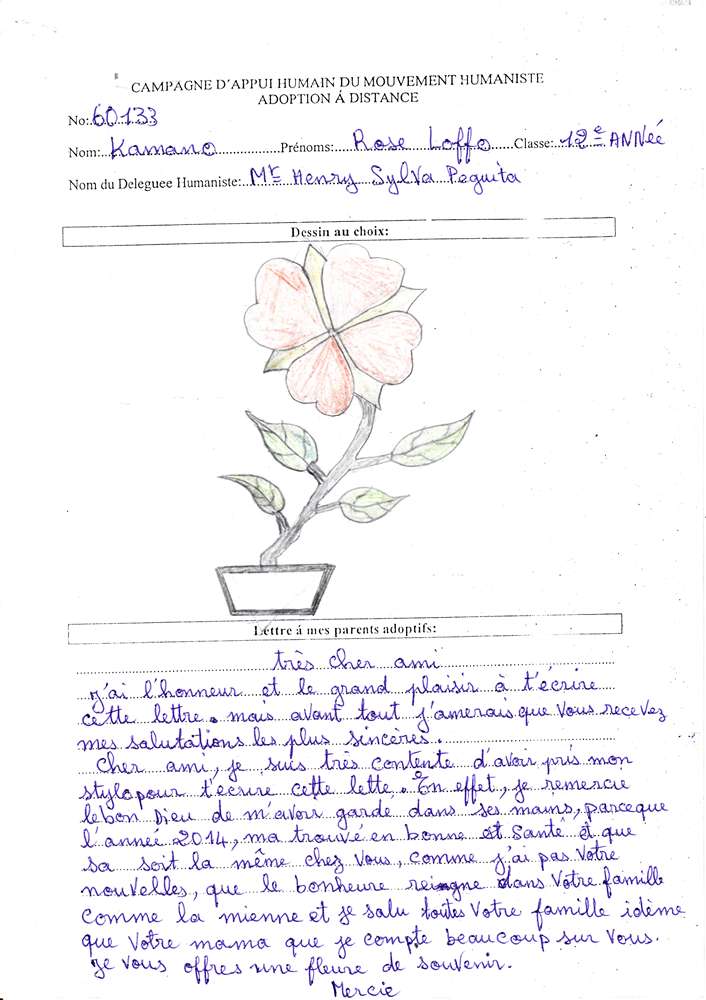 CAMPAGNE D'APPUI HUMAIN DU MOUVEMENT HUMANISTE
ADOPTION Á DISTANCE
No: 60133
Nom: Kamano Prénoms: Rose Loffo Classe: 12e ANNéé
Nom du Deleguee Humaniste: Mr Henry Sylva Peguita
Dessin au choix:
Lettre á mes parents adoptifs:
très cher ami
j'ai l'honneur et le grand plaisir à t'écrire
cette lettre. mais avant tout j'amerais que vous recevez
mes salutations les plus sincères.
Cher ami, je suis très contente d'avoir pris mon
stylo pour t'écrire cette lette. En effet, je remercie
le bon Dieu de m'avoir garde dans ses mains, parce que
l'anneé 2014, ma trouvé en bonne et Santé et que
sa soit la même chez vous, comme j'ai pas votre
nouvelles, que le bonheure reingne dans votre famille
comme la mienne et je salu toutes votre famille idème
que votre mama que je compte beaucoup sur vous.
Je vous offres une fleure de souvenir.
Mercie